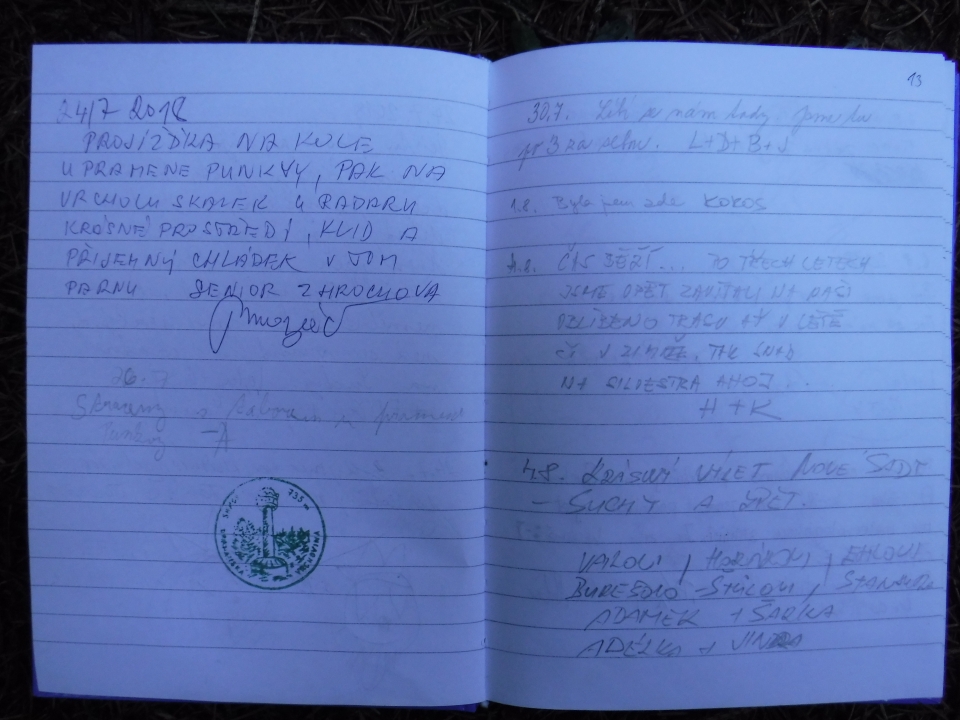 24/7 2018
PROJÍŽĎKA NA KOLE
U PRAMENE PUNKVY, PAK NA
VRCHOLU SKALEK U RADARU
KRÁSNÉ PROSTŘEDÍ, KLID A
PŘÍJEMNÝ CHLÁDEK V TOM
PARNU SENIOR Z HROCHOVA
26.7
Punkvy
13
30.7. Líbí se nám tady jsme tu
po 3 za sebou. L+D+B+J
1.8. Byla jsem zde KOKOS
ČAS BĚŽÍ... PO TŘECH LETECH
JSME OPĚT ZAVÍTALI NA NAŠI
OBLÍBENO TRASU AŤ V LÉTĚ
ČI V ZIMNĚ, TAK SNAD
NA SILVESTRA AHOJ...
H+K
4.8. KRÁSNÝ VÝLET NOVÉ SADY
- SUCHÝ A ZPĚT.
BUREŠOVO -
ADÁMEK + ŠÁRKA
ADÉLKA +
735 m